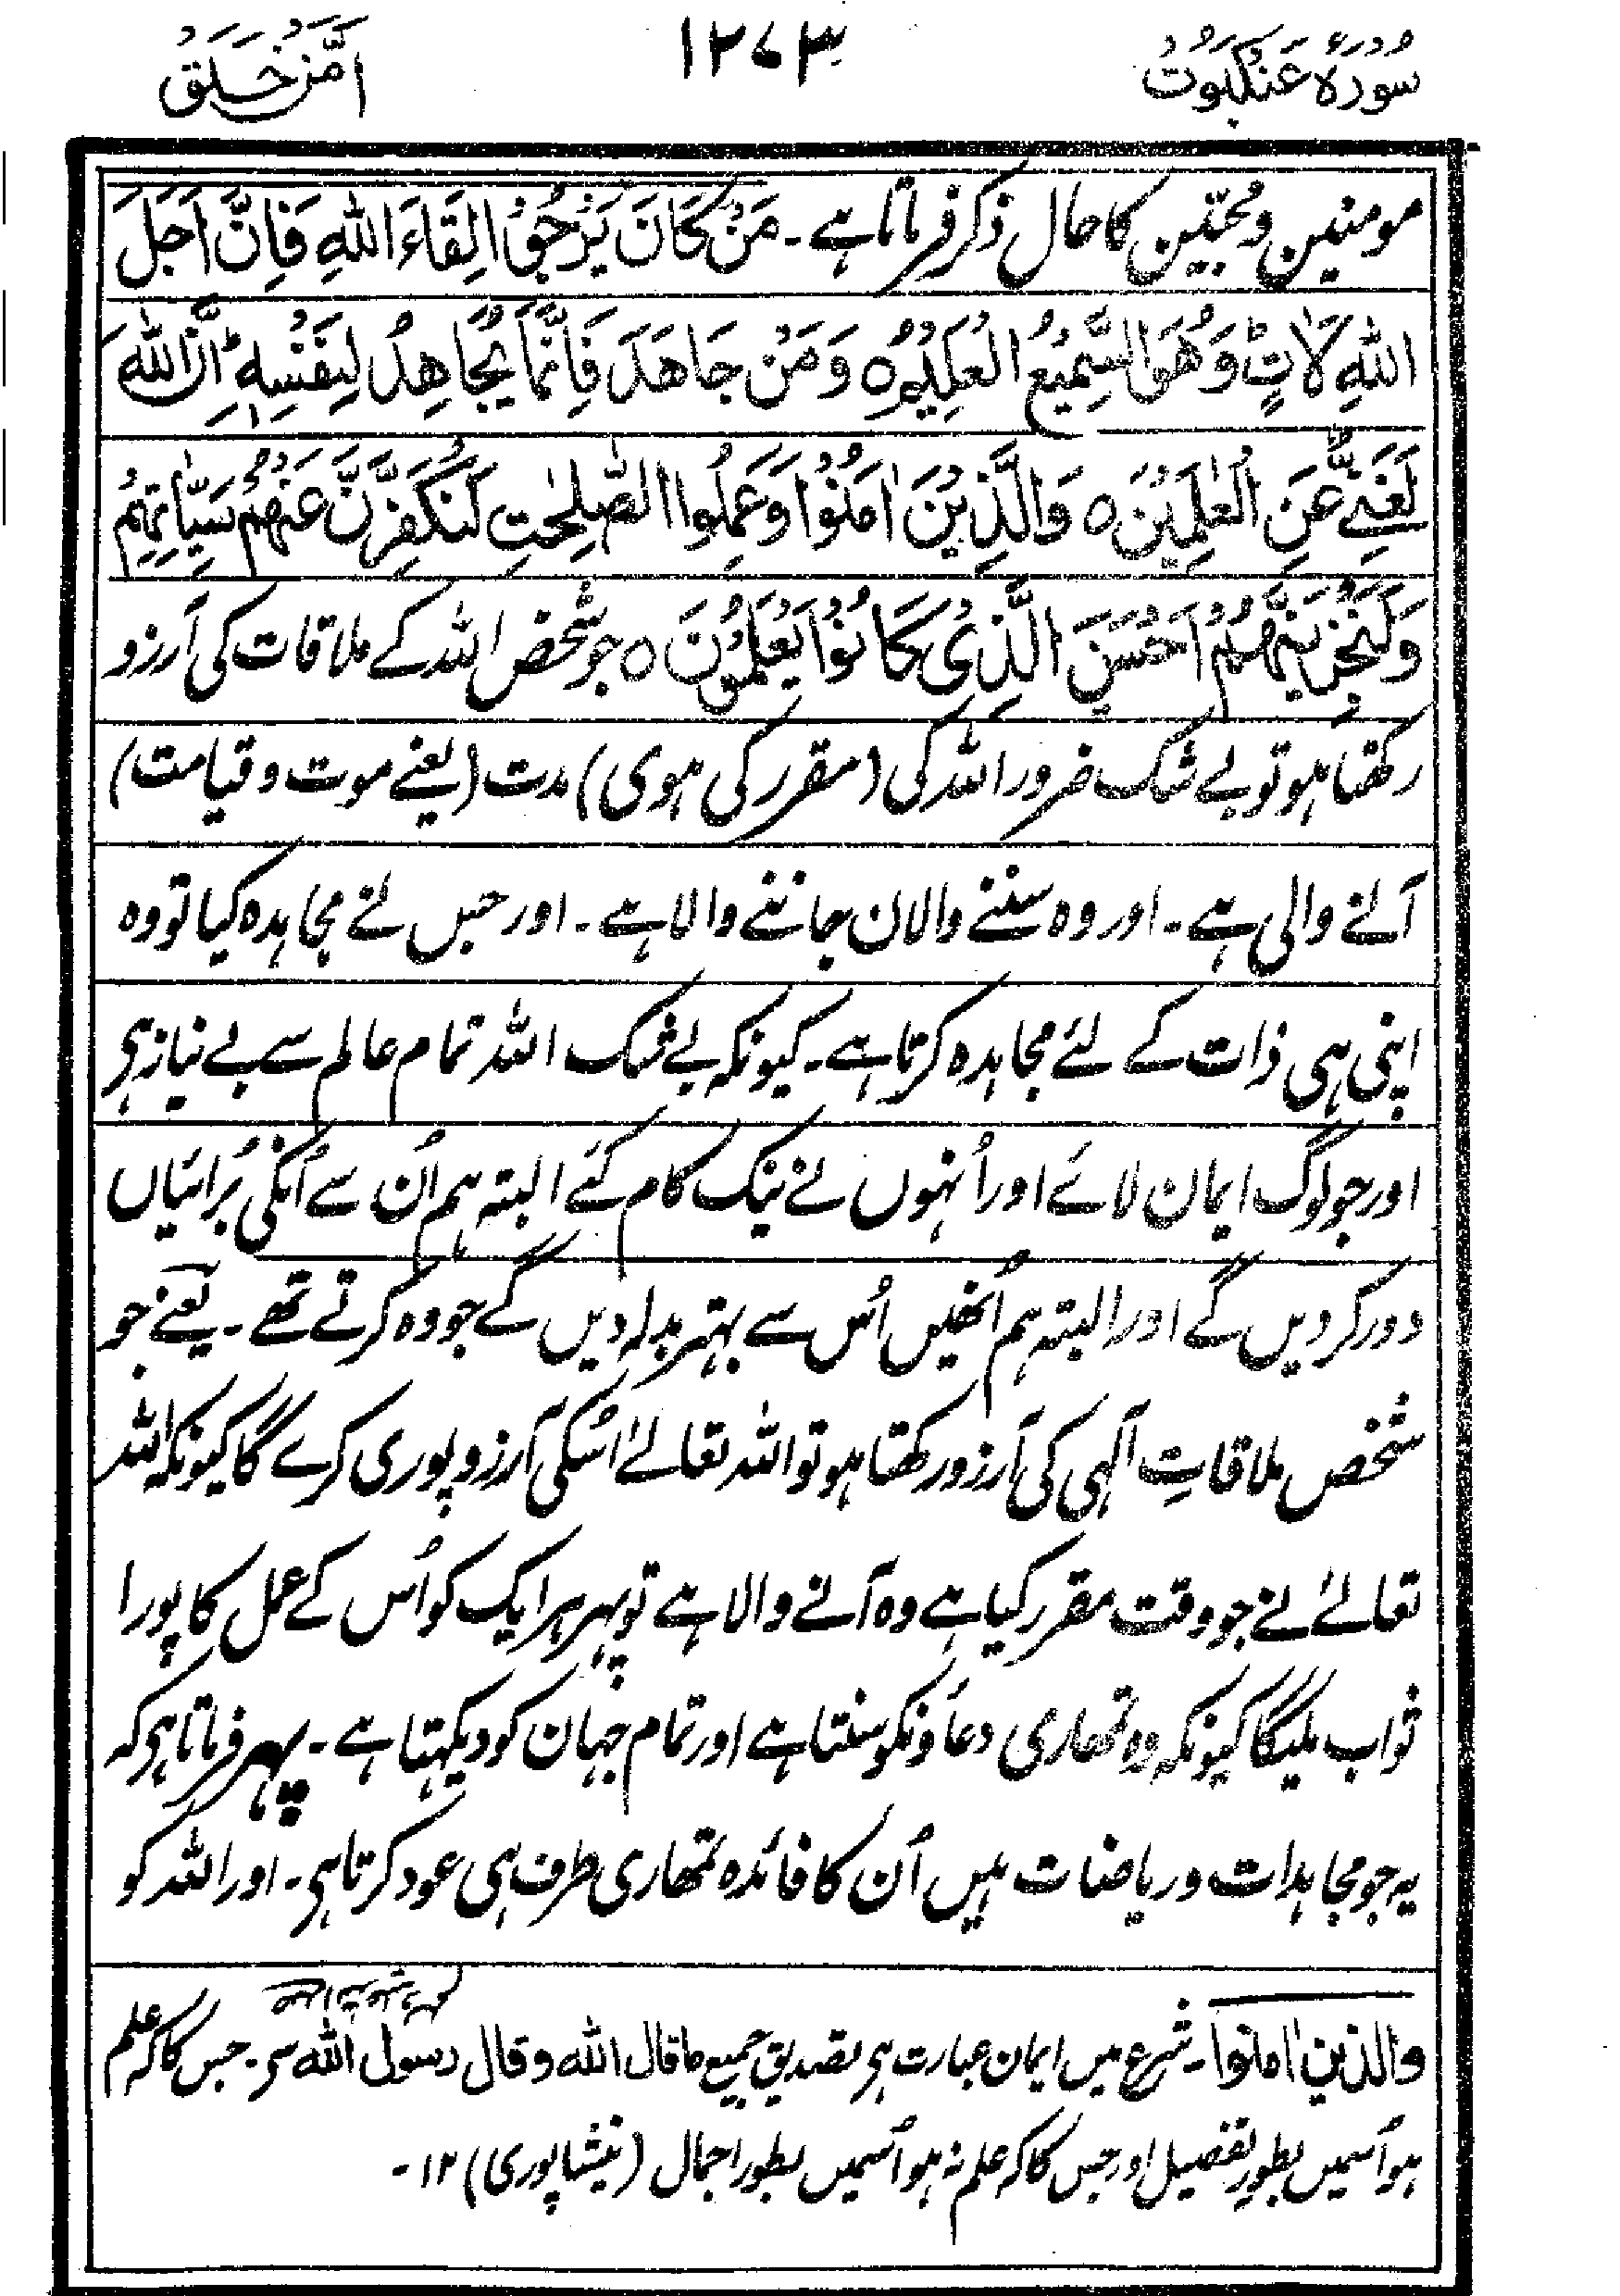 سورۃ عنکبوت
۱۲۷۳
امّن خلق
مومنین و محبّین کا حال ذکر فرماتا ہے۔ مَنْ كَانَ يَرْجُوْا لِقَآءَ اللّٰهِ فَاِنَّ اَجَلَ
اللّٰهِ لَاٰتٍ ؕ وَهُوَ السَّمِيْعُ الْعَلِيْمُ ٥ وَمَنْ جَاهَدَ فَاِنَّمَا يُجَاهِدُ لِنَفْسِهٖ ؕ اِنَّ اللّٰهَ
لَغَنِىٌّ عَنِ الْعٰلَمِيْنَ ٥ وَالَّذِيْنَ اٰمَنُوْا وَعَمِلُوا الصّٰلِحٰتِ لَنُكَفِّرَنَّ عَنْهُمْ سَيِّاٰتِهِمْ
وَلَنَجْزِيَنَّهُمْ اَحْسَنَ الَّذِىْ كَانُوْا يَعْمَلُوْنَ ٥ جو شخص اللہ کے ملاقات کی آرزو
رکھتا ہو تو بے شک ضرور اللہ کی (مقرر کی ہوی) مدت (یعنے موت و قیامت)
آنے والی ہے۔ اور وہ سننے والا ن جاننے والا ہے۔ اور جس نے مجاہدہ کیا تو وہ
اپنی ہی ذات کے لئے مجاہدہ کرتا ہے۔ کیونکہ بے شک اللہ تمام عالم سے بے نیاز ہی
اور جو لوگ ایمان لائے اور اُنہوں نے نیک کام کئے البتہ ہم اُن سے اُنکی بُرائیاں
دور کر دیں گے اور البتہ ہم اُنھیں اُس سے بہتر بدلہ دیں گے جو وہ کرتے تھے۔ یعنے جو
شخص ملاقاتِ آلٰہی کی آرزو رکھتا ہو تو اللہ تعالےٰ اُسکی آرزو پوری کرے گا کیونکہ اللہ
تعالےٰ نے جو وقت مقرر کیا ہے وہ آنے والا ہے تو پہر ہر ایک کو اُس کے عمل کا پورا
ثواب ملیگا کیونکہ وہ تمھاری دعاؤنکو سنتا ہے اور تمام جہان کو دیکہتا ہے۔ پہر فرماتا ہی کہ
یہ جو مجاہدات و ریاضات ہیں اُن کا فائدہ تمھاری طرف ہی عود کرتا ہی۔ اور اللہ کو
والذین اٰمنوا۔ شرع میں ایمان عبارت ہی تصدیق جمیع ما قال اللہ و قال رسول اللہ سی۔ جس کا کہ علم
ہو اُسمیں بطورِ تفصیل اور جس کا کہ علم نہ ہو اُسمیں بطور اجمال (نیشاپوری) ۱۲۔